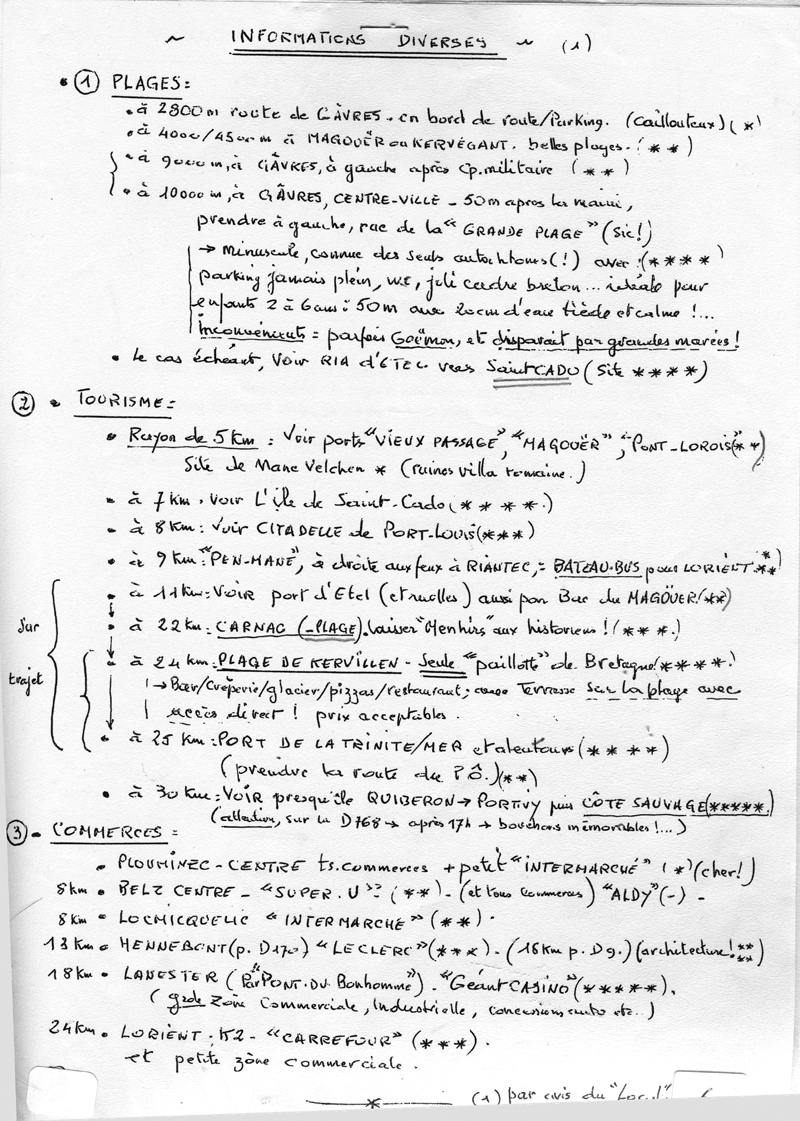 ~ INFORMATIONS DIVERSES ~ (1)
• ① PLAGES :
• à 2800m route de GÂVRES. en bord de route/Parking. (caillouteux) (*)
• à 4000/4500m à MAGOUËR ou KERVÉGANT. belles plages. (**)
• à 9000m, à GÂVRES, à gauche après Cp. militaire (**)
• à 10000m, à GÂVRES, CENTRE-VILLE - 50m apres la mairie,
prendre à gauche, rue de la "GRANDE PLAGE" (Sic!)
→ minuscule, connue des seuls autochtones (!) avec : (****)
parking jamais plein, wc, joli cadre breton... idéale pour
enfants 2 à 6 ans : 50m aux 20cm d'eau tiède et calme !...
inconvénients = parfois Goëmon, et disparait par grandes marées !
• le cas échéant, Voir RIA d'ETEL vers Saint CADO (Site ****)
② • TOURISME =
• Rayon de 5 km : Voir ports "VIEUX PASSAGE", "MAGOUËR", "PONT-LOROIS" (**)
Site de Mane Velchen * (ruines villa romaine.)
• à 7 km. Voir L'Île de Saint-Cado (****.)
• à 8 km : Voir CITADELLE de PORT-LOUIS (***)
• à 9 km : "PEN-MANE", à droite aux feux à RIANTEC, = BATEAU-BUS pour LORIENT (**)
• à 11 km : VOIR port d'Etel (et ruelles) aussi par Bac du MAGÖUER (**)
Sur
trajet
• à 22 km : CARNAC (-PLAGE). laisser "Menhirs" aux historiens ! (***.)
• à 24 km : PLAGE DE KERVILLEN - Seule "paillotte" de Bretagne (****.)
→ Bar/Crêperie/glacier/pizzas/restaurant, avec Terrasse sur la plage avec
accès direct ! prix acceptables.
• à 25 km : PORT DE LA TRINITE/MER et alentours (****)
(prendre la route du PÔ.) (**)
• à 30 km : VOIR presqu'île QUIBERON → PORTIVY puis CÔTE SAUVAGE (*****.)
(attention, sur la D768 → après 17h → bouchons mémorables !...)
③ • COMMERCES :
• PLOUHINEC-CENTRE ts. commerces + petit "INTERMARCHÉ" (*) (cher!)
8km • BELZ CENTRE - "SUPER.U" (**) - (et tous commerces) "ALDY" (-) -
8km • LOCMIQUELIC "INTERMARCHE" (**).
13km • HENNEBONT (p. D170) "LECLERC" (***) - (16km p. D9.) (architecture! **)
18km • LANESTER (Par "PONT. DU Bonhomme") - "Géant CASINO" (*****),
(grde Zone Commerciale, Industrielle, concessions auto etc..)
24km • LORIENT. K2 - "CARREFOUR" (***).
et petite zône commerciale.
(1) par avis du "Local"